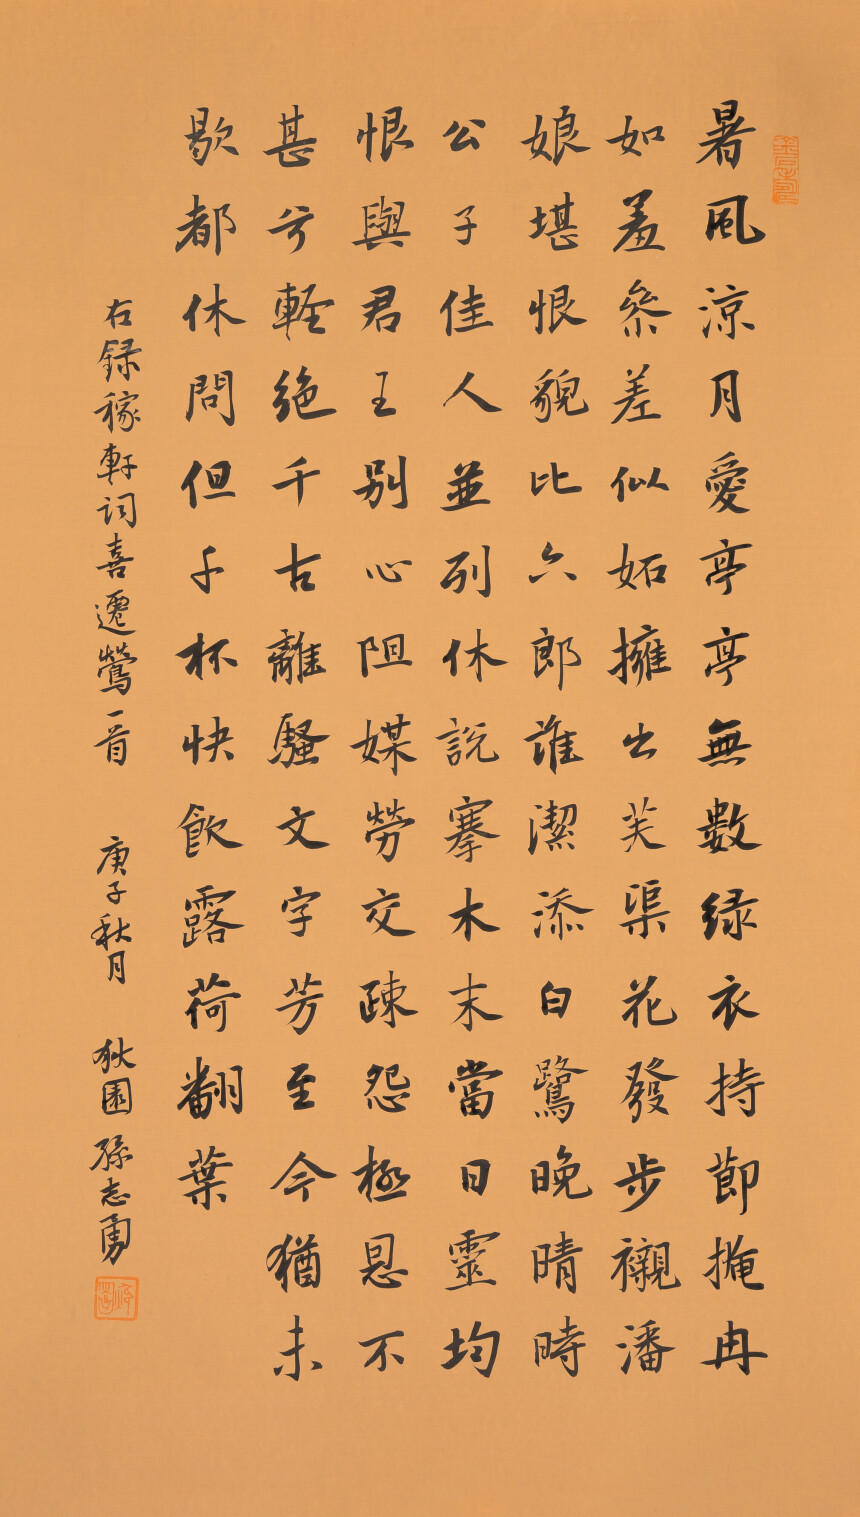 暑風涼月愛亭亭無數绿衣持節掩冉
如羞參差似妬擁出芙渠花發步襯潘
娘堪恨貌比六郎誰潔添白鷺晚晴時
公子佳人並列休説搴木末當日靈均
恨與君王别心阻媒勞交疎怨極恩不
甚兮輕绝千古離騷文字芳至今猶未
歇都休問但千杯快飲露荷翻葉
右録稼軒词喜遷鶯一首 庚子秋月 狄園 孫志勇